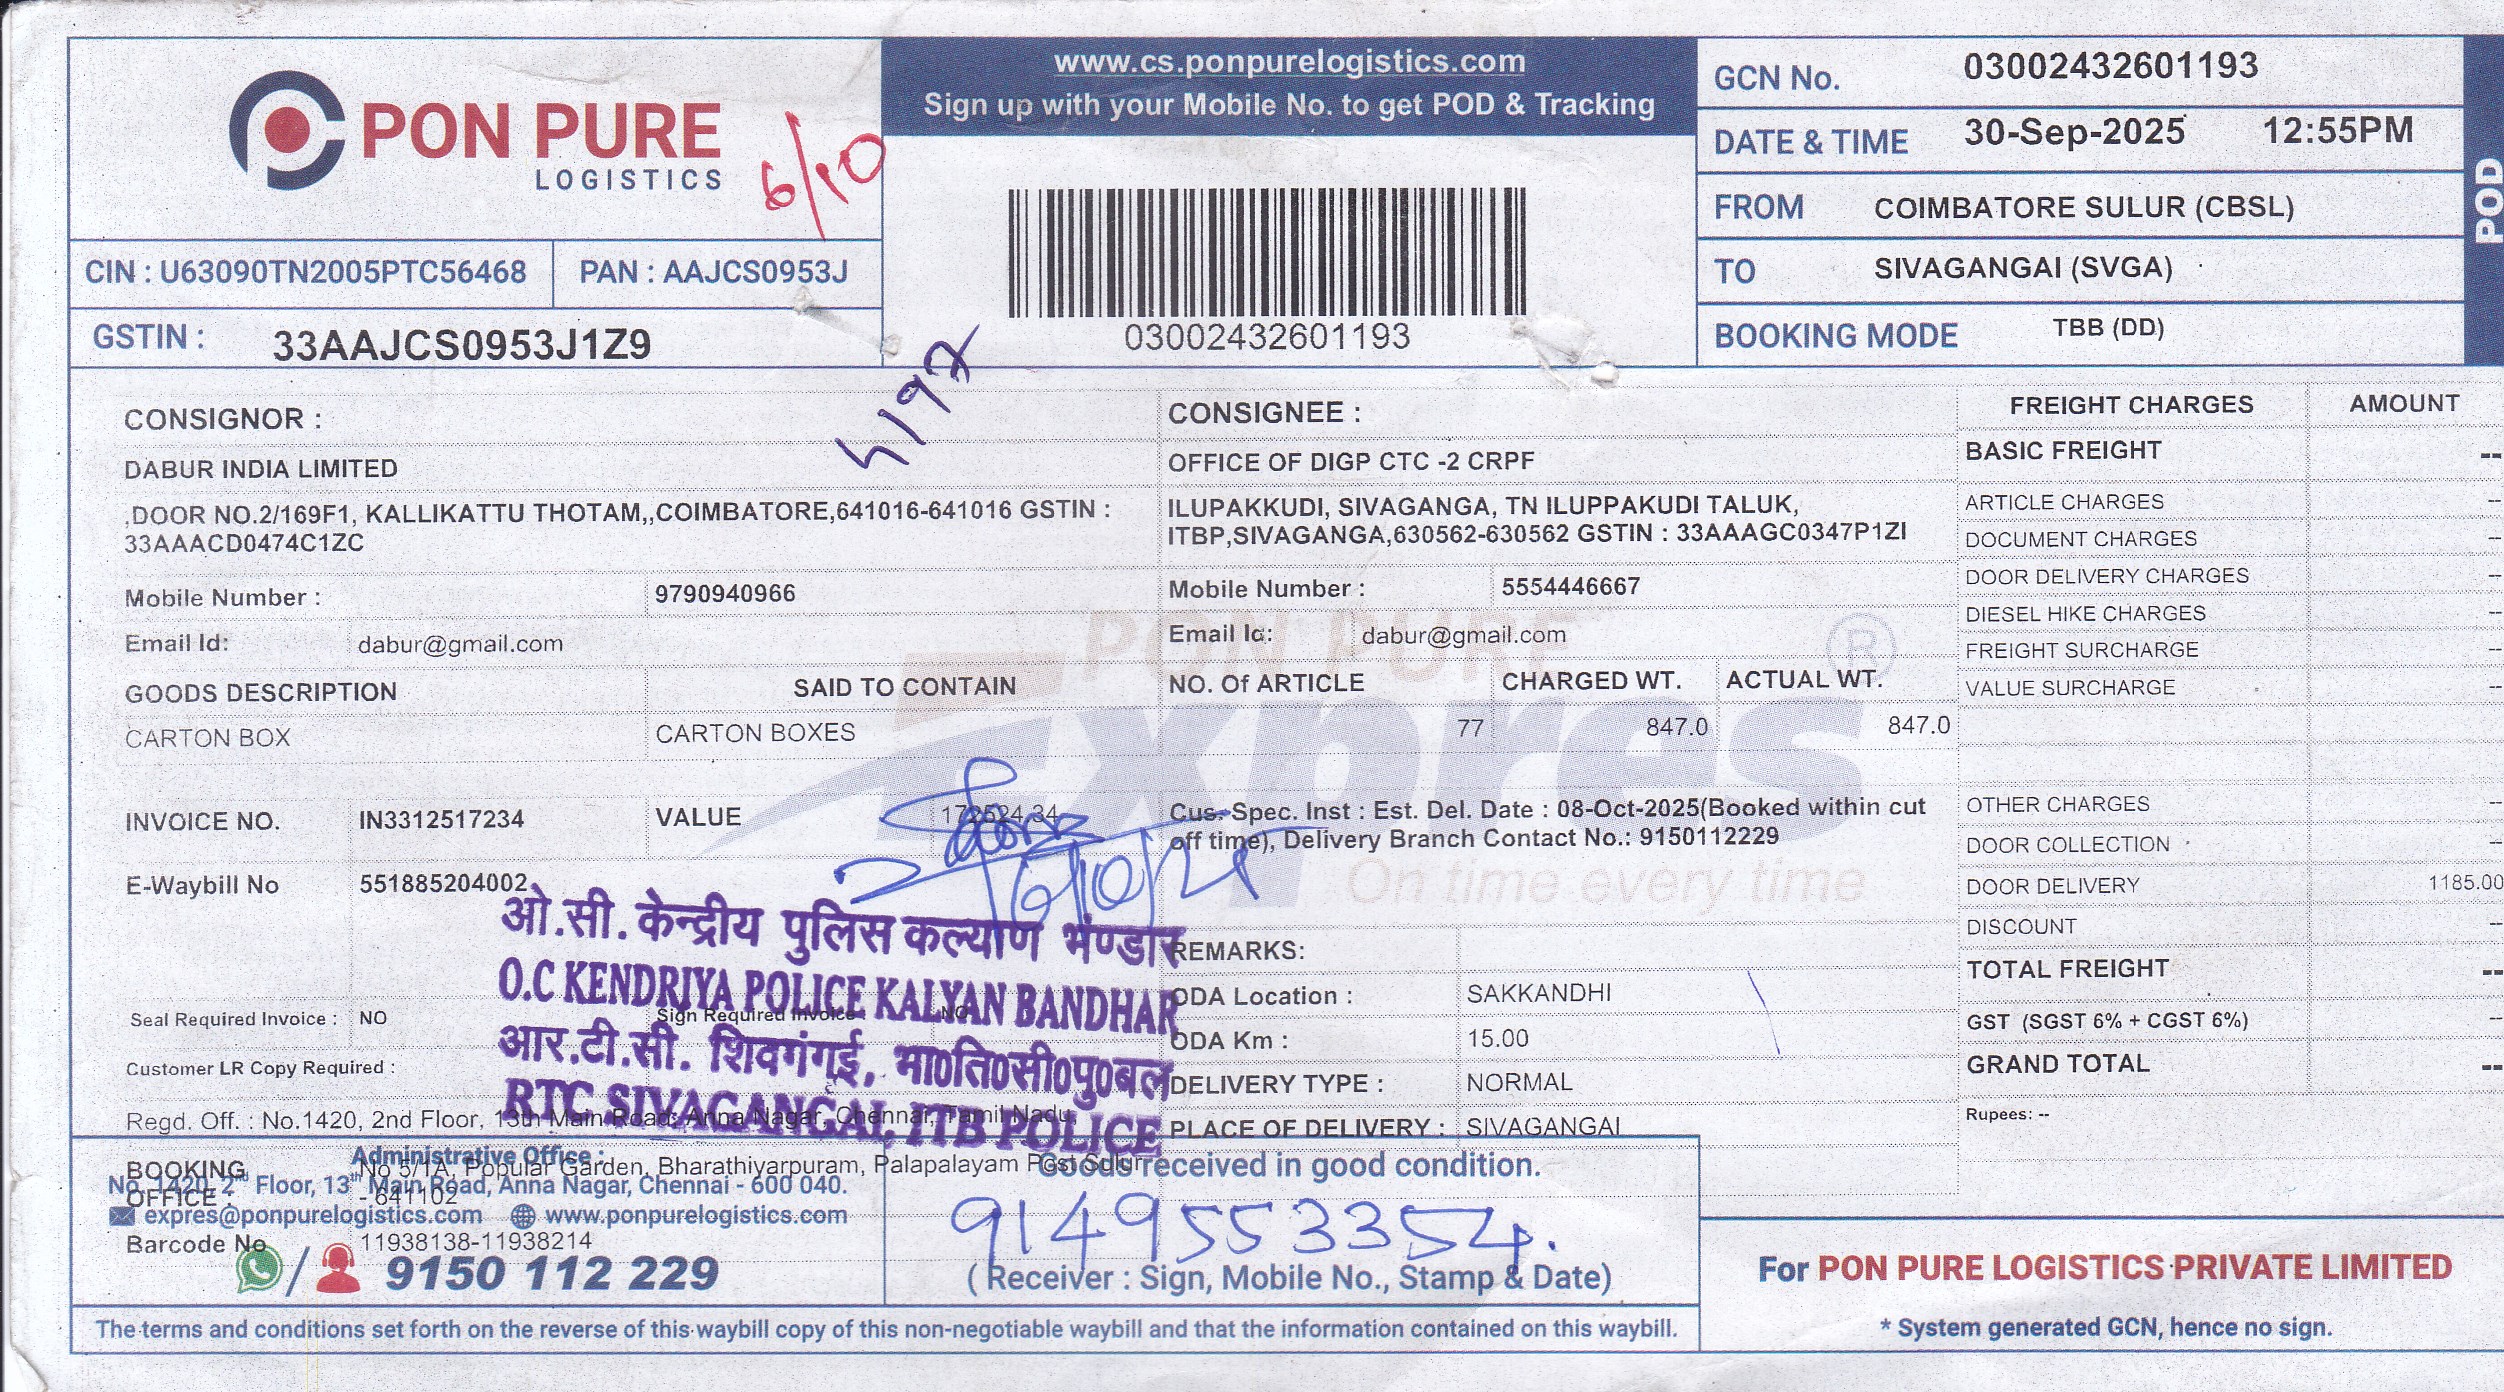 PON PURE
LOGISTICS
6/10
www.cs.ponpurelogistics.com
Sign up with your Mobile No. to get POD & Tracking
03002432601193
GCN No. 03002432601193
DATE & TIME 30-Sep-2025 12:55PM
FROM COIMBATORE SULUR (CBSL)
TO SIVAGANGAI (SVGA)
BOOKING MODE TBB (DD)
POD
CIN : U63090TN2005PTC56468 PAN : AAJCS0953J
GSTIN : 33AAJCS0953J1Z9
CONSIGNOR :
DABUR INDIA LIMITED
,DOOR NO.2/169F1, KALLIKATTU THOTAM,,COIMBATORE,641016-641016 GSTIN :
33AAACD0474C1ZC
Mobile Number : 9790940966
Email Id: dabur@gmail.com
GOODS DESCRIPTION SAID TO CONTAIN
CARTON BOX CARTON BOXES
INVOICE NO. IN3312517234 VALUE 172524.34
E-Waybill No 551885204002
CONSIGNEE :
OFFICE OF DIGP CTC -2 CRPF
ILUPAKKUDI, SIVAGANGA, TN ILUPPAKUDI TALUK,
ITBP,SIVAGANGA,630562-630562 GSTIN : 33AAAGC0347P1ZI
Mobile Number : 5554446667
Email Id: dabur@gmail.com
NO. Of ARTICLE CHARGED WT. ACTUAL WT.
77 847.0 847.0
PON PURE
Expres
®
On time every time
Cus. Spec. Inst : Est. Del. Date : 08-Oct-2025(Booked within cut
off time), Delivery Branch Contact No.: 9150112229
REMARKS:
ODA Location : SAKKANDHI
ODA Km : 15.00
DELIVERY TYPE : NORMAL
PLACE OF DELIVERY : SIVAGANGAI
FREIGHT CHARGES AMOUNT
BASIC FREIGHT --
ARTICLE CHARGES --
DOCUMENT CHARGES --
DOOR DELIVERY CHARGES --
DIESEL HIKE CHARGES --
FREIGHT SURCHARGE --
VALUE SURCHARGE --
OTHER CHARGES --
DOOR COLLECTION --
DOOR DELIVERY 1185.00
DISCOUNT --
TOTAL FREIGHT --
GST (SGST 6% + CGST 6%) --
GRAND TOTAL --
Rupees: --
ओ.सी. केन्द्रीय पुलिस कल्याण भण्डार
O.C KENDRIYA POLICE KALYAN BANDHAR
आर.टी.सी. शिवगंगई, भा०ति०सी०पु०बल
RTC SIVAGANGAI, ITB POLICE
Seal Required Invoice : NO Sign Required Invoice : NO
Customer LR Copy Required :
Regd. Off. : No.1420, 2nd Floor, 13th Main Road, Anna Nagar, Chennai, Tamil Nadu,
BOOKING OFFICE : No 5/1A, Popular Garden, Bharathiyarpuram, Palapalayam Post Sulur
- 641102
Administrative Office :
No. 1420, 2nd Floor, 13th Main Road, Anna Nagar, Chennai - 600 040.
expres@ponpurelogistics.com www.ponpurelogistics.com
Barcode No 11938138-11938214
9150 112 229
Goods received in good condition.
9149553354.
( Receiver : Sign, Mobile No., Stamp & Date)
For PON PURE LOGISTICS PRIVATE LIMITED
* System generated GCN, hence no sign.
The terms and conditions set forth on the reverse of this waybill copy of this non-negotiable waybill and that the information contained on this waybill.